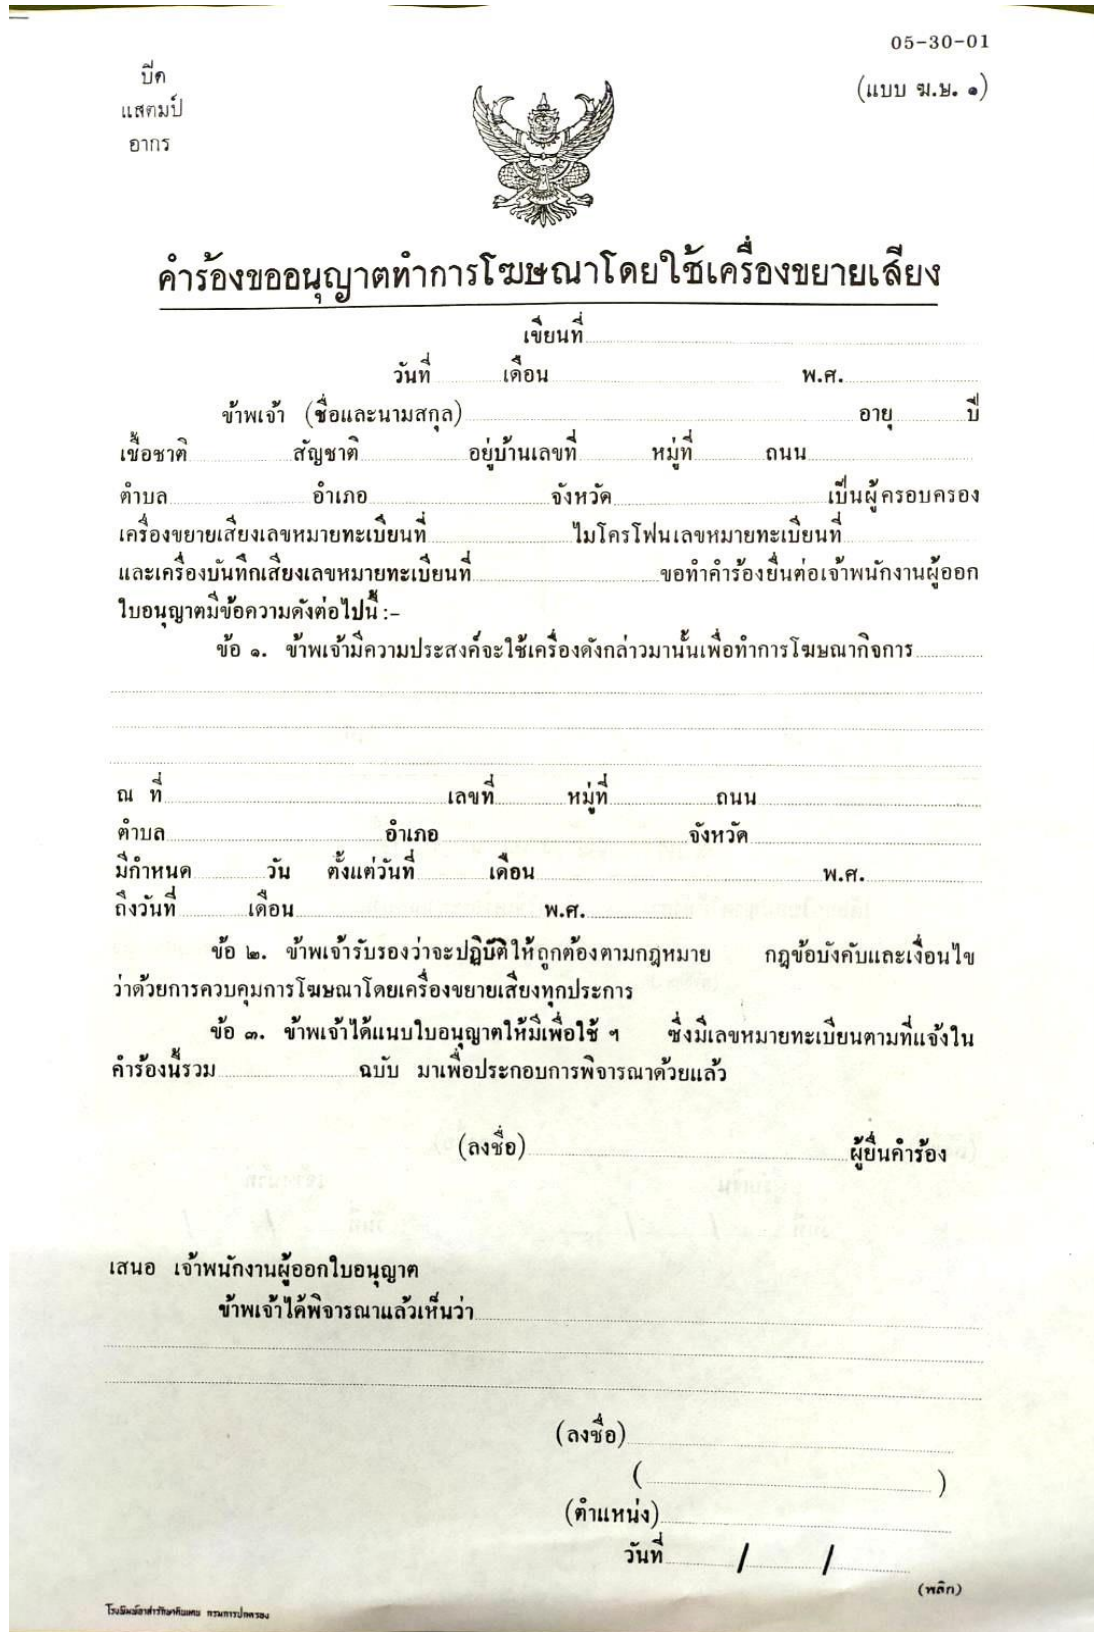 05-30-01
ปิด
แสตมป์
อากร
(แบบ ฆ.ษ. ๑)
คำร้องขออนุญาตทำการโฆษณาโดยใช้เครื่องขยายเสียง
เขียนที่
วันที่ เดือน พ.ศ.
ข้าพเจ้า (ชื่อและนามสกุล) อายุ ปี
เชื้อชาติ สัญชาติ อยู่บ้านเลขที่ หมู่ที่ ถนน
ตำบล อำเภอ จังหวัด เป็นผู้ครอบครอง
เครื่องขยายเสียงเลขหมายทะเบียนที่ ไมโครโฟนเลขหมายทะเบียนที่
และเครื่องบันทึกเสียงเลขหมายทะเบียนที่ ขอทำคำร้องยื่นต่อเจ้าพนักงานผู้ออก
ใบอนุญาตมีข้อความดังต่อไปนี้ :-
ข้อ ๑. ข้าพเจ้ามีความประสงค์จะใช้เครื่องดังกล่าวมานั้นเพื่อทำการโฆษณากิจการ
ณ ที่ เลขที่ หมู่ที่ ถนน
ตำบล อำเภอ จังหวัด
มีกำหนด วัน ตั้งแต่วันที่ เดือน พ.ศ.
ถึงวันที่ เดือน พ.ศ.
ข้อ ๒. ข้าพเจ้ารับรองว่าจะปฏิบัติให้ถูกต้องตามกฎหมาย กฎข้อบังคับและเงื่อนไข
ว่าด้วยการควบคุมการโฆษณาโดยเครื่องขยายเสียงทุกประการ
ข้อ ๓. ข้าพเจ้าได้แนบใบอนุญาตให้มีเพื่อใช้ ฯ ซึ่งมีเลขหมายทะเบียนตามที่แจ้งใน
คำร้องนี้รวม ฉบับ มาเพื่อประกอบการพิจารณาด้วยแล้ว
(ลงชื่อ) ผู้ยื่นคำร้อง
เสนอ เจ้าพนักงานผู้ออกใบอนุญาต
ข้าพเจ้าได้พิจารณาแล้วเห็นว่า
(ลงชื่อ)
( )
(ตำแหน่ง)
วันที่ / /
(พลิก)
โรงพิมพ์อาสารักษาดินแดน กรมการปกครอง